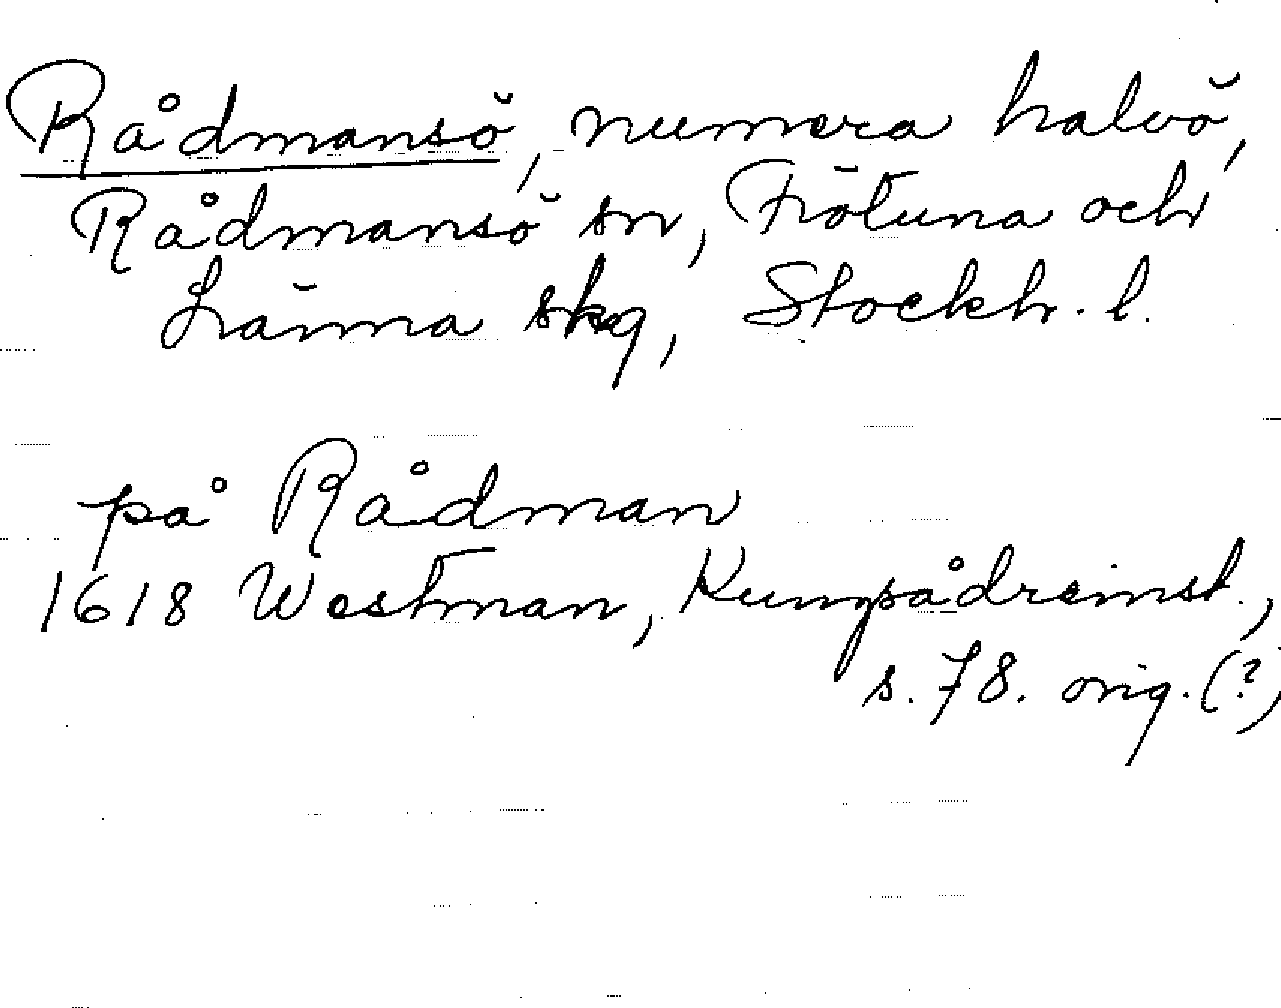 Rådmansö, numera halvö,
Rådmansö sn, Frötuna och
Länna skg, Stockh. l.
på Rådman
1618 Westman, Kungsådreinst.,
s. 78. orig. (?)